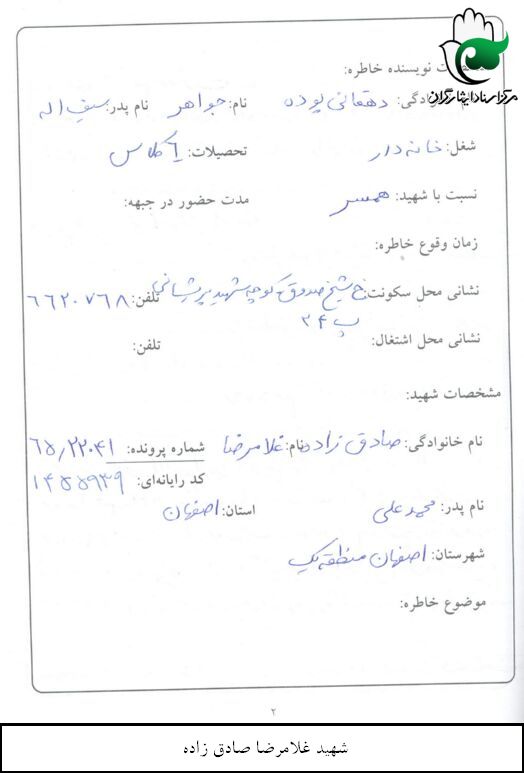 مرکز اسناد ایثارگران
مشخصات نویسنده خاطره:
نام خانوادگی: دهقانی پوده نام: جواهر نام پدر: سیف اله
شغل: خانه دار تحصیلات: ۶ کلاس
نسبت با شهید: همسر مدت حضور در جبهه:
زمان وقوع خاطره:
نشانی محل سکونت: خ شیخ صدوق کوچه شهید پریشانی تلفن: ۶۶۲۰۷۶۸
پ ۲۴
نشانی محل اشتغال: تلفن:
مشخصات شهید:
نام خانوادگی: صادق زاده نام: غلامرضا شماره پرونده: ۶۵/۲۲۰۴۱
کد رایانه‌ای: ۱۴۵۵۹۳۹
نام پدر: محمد علی استان: اصفهان
شهرستان: اصفهان منطقه یک
موضوع خاطره:
۲
شهید غلامرضا صادق زاده